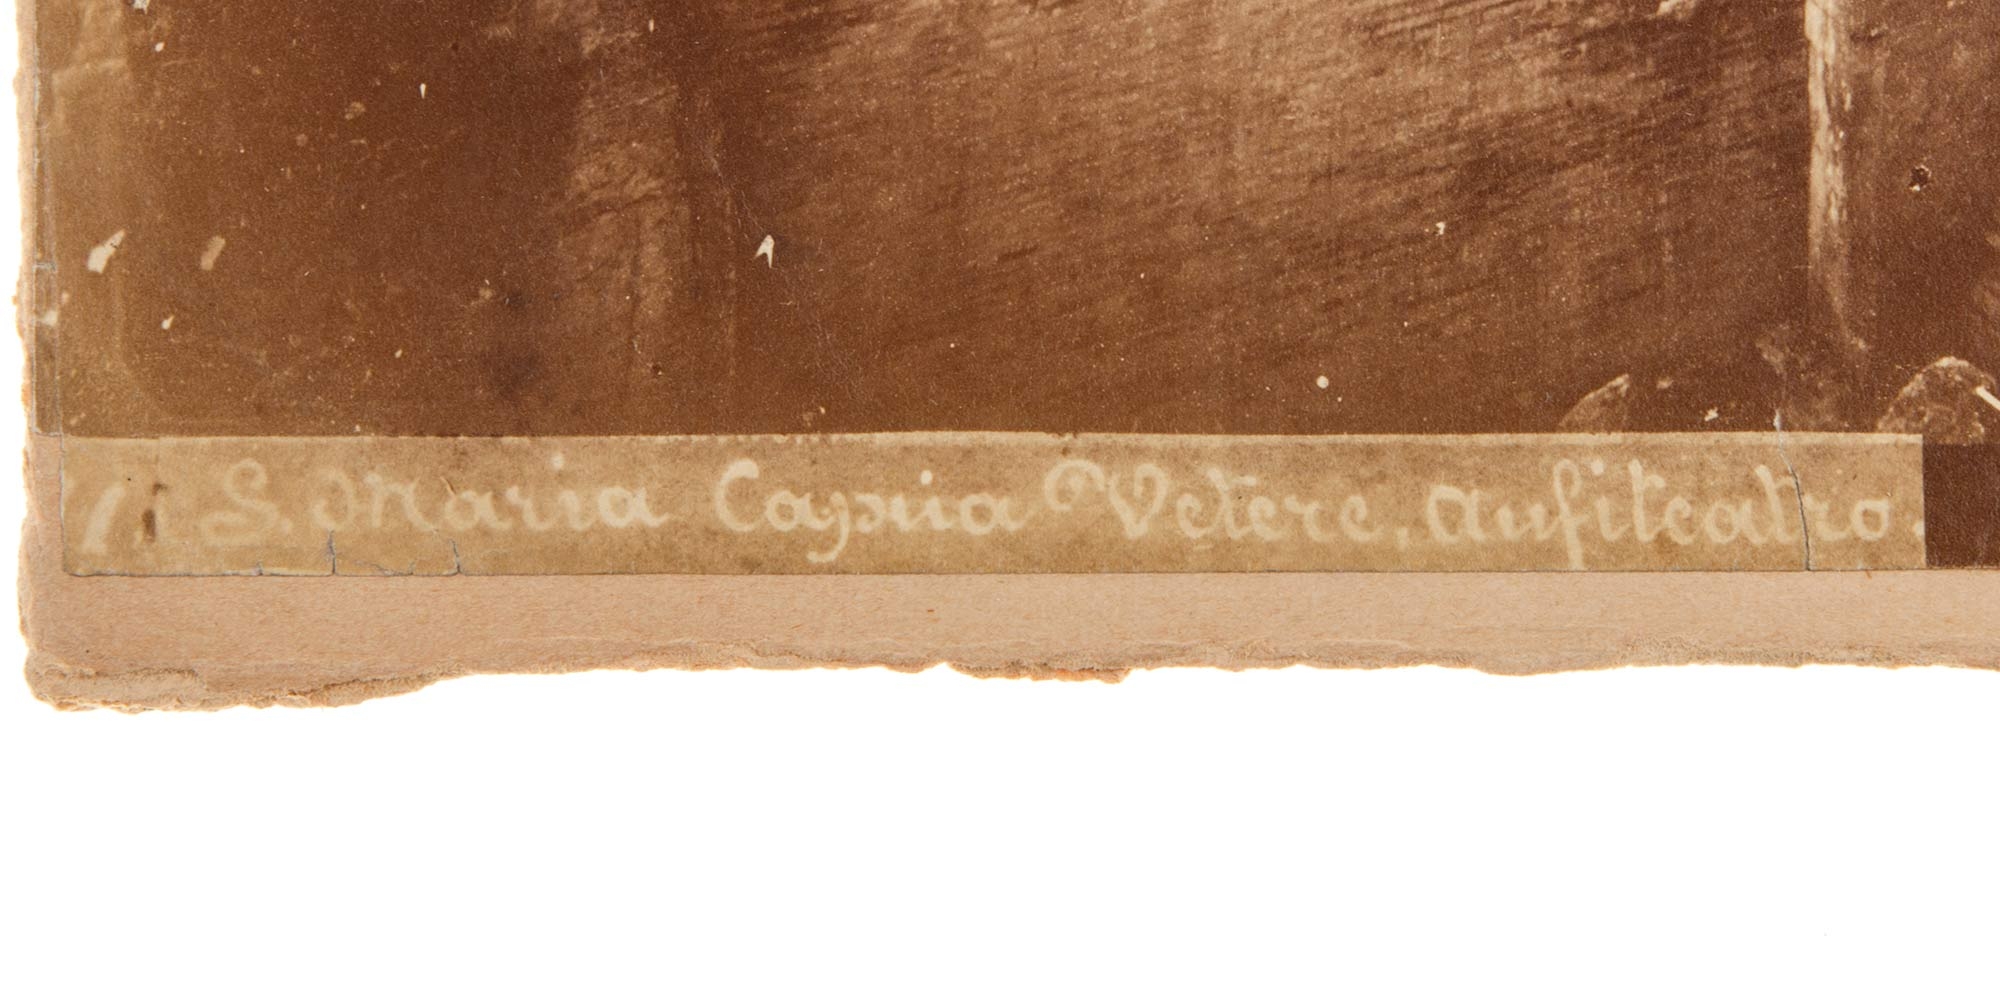 S. Maria Capua Vetere. Anfiteatro.